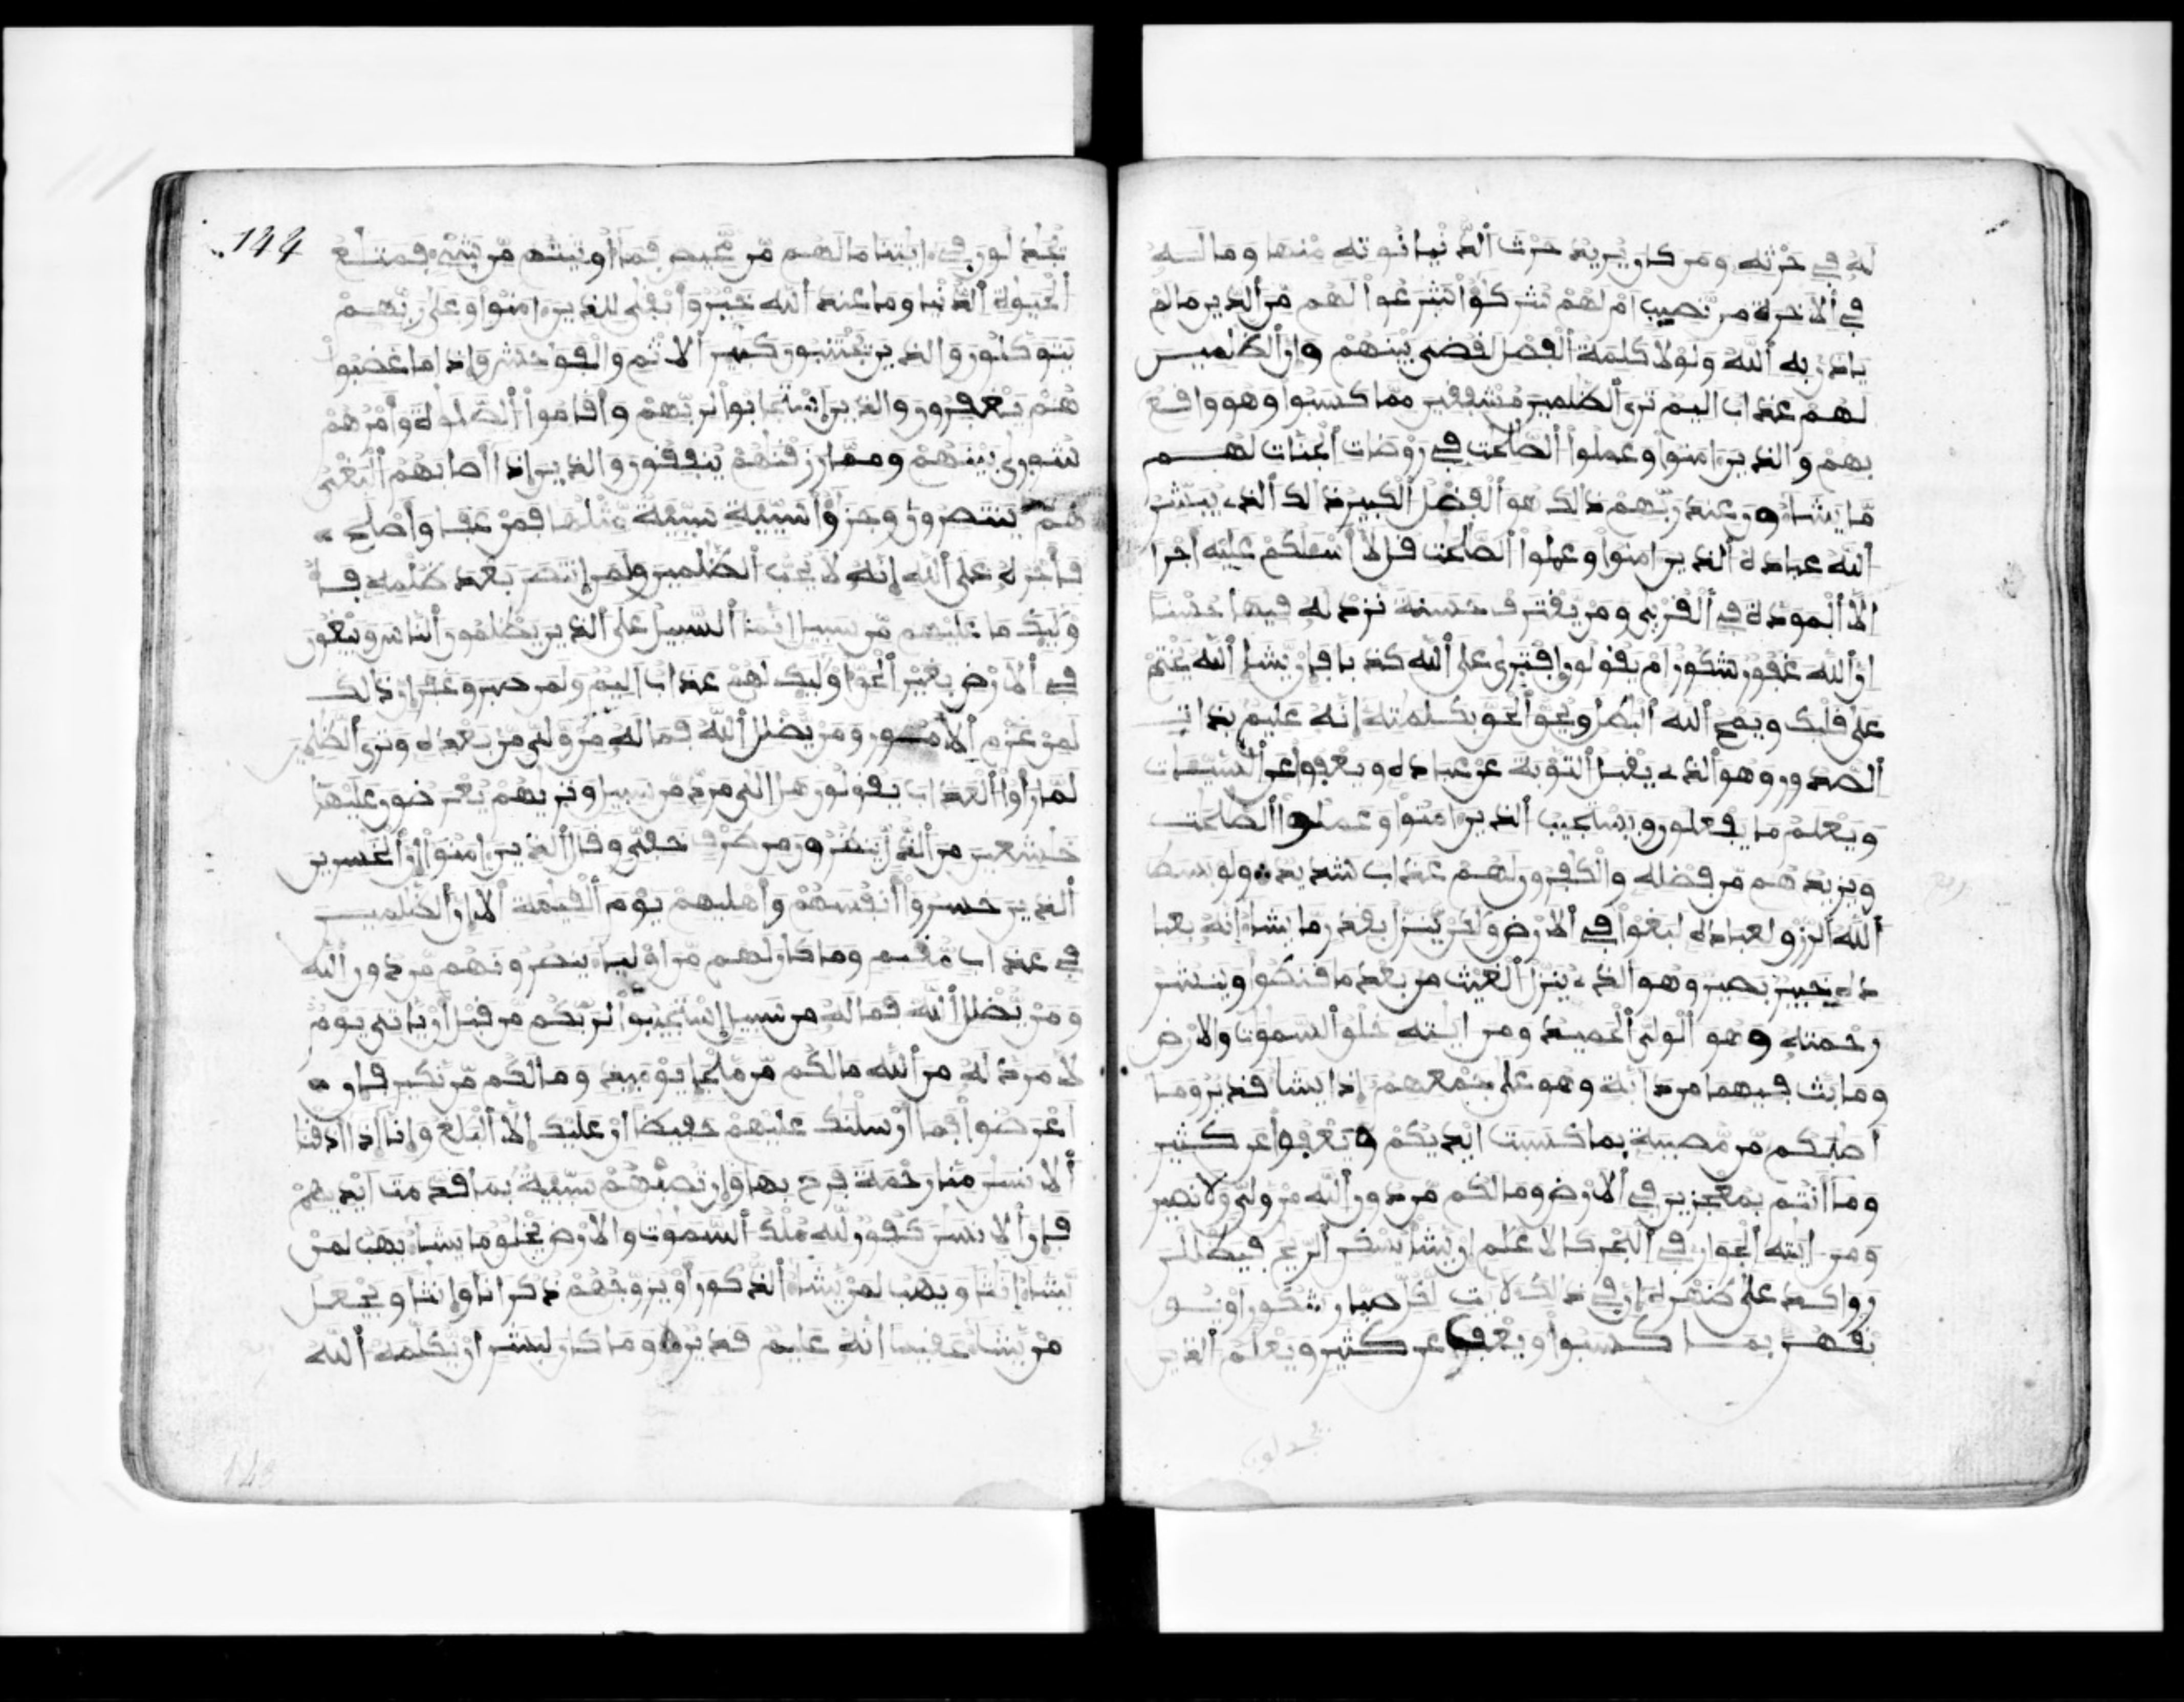 له في حرثه ومن كان يريد حرث الدنيا نوته منها وما لـــه
في الاخرة من نصيب ام لهم شركؤا شرعوا لهم من الدين ما لم
ياذن به الله ولولا كلمة الفصل لقضي بينهم وان الظلميـــن
لهم عذاب اليم ترى الظلمين مشفقين مما كسبوا وهو واقع
بهم والذين امنوا وعملوا الصلحت في روضات الجنات لهـــم
ما يشاءون عند ربهم ذالك هو الفضل الكبير ذالك الذي يبشر
الله عباده الذين امنوا وعملوا الصلحت قل لا اسلكم عليه اجرا
الا المودة في القربى ومن يقترف حسنة نزد له فيها حسنا
ان الله غفور شكور ام يقولون افترى على الله كذبا فان يشا الله يختم
على قلبك ويمح الله البطل ويحق الحق بكلمته انه عليم بذات
الصدور وهو الذي يقبل التوبة عن عباده ويعفوا عن السيات
ويعلم ما يفعلون ويستجيب الذين امنوا وعملوا الصلحت
ويزيدهم من فضله والكفرون لهم عذاب شديد ولو بسط
الله الرزق لعباده لبغوا في الارض ولكن ينزل بقدر ما يشاء انه بعبا
ده خبير بصير وهو الذي ينزل الغيث من بعد ما قنطوا وينشر
رحمته وهو الولي الحميد ومن ايته خلق السموت والارض
وما بث فيهما من دابة وهو على جمعهم اذا يشا قدير وما
اصبكم من مصيبة بما كسبت ايديكم ويعفوا عن كثير
وما انتم بمعجزين في الارض وما لكم من دون الله من ولي ولا نصير
ومن ايته الجوار في البحر كالاعلم ان يشا يسكن الريح فيظللن
رواكد على ظهره ان في ذالك لايت لكل صبار شكور او يـــو
بقهن بمــا كسبوا ويعف عن كثير ويعلم الذين
يجدلون
144
يجدلون في ايتنا ما لهم من محيص فما اوتيتم من شيء فمتع
الحيوة الدنيا وما عند الله خير وابقى للذين امنوا وعلى ربهم
يتوكلون والذين يجتنبون كبير الاثم والفوحش واذا ما غضبوا
هم يغفرون والذين استجابوا لربهم واقاموا الصلوة وامرهم
شورى بينهم ومما رزقنهم ينفقون والذين اذا اصابهم البغي
هم ينتصرون وجزؤا سيية سيية مثلها فمن عفا واصلح
فاجره على الله انه لا يحب الظلمين ولمن انتصر بعد ظلمه فــا
وليك ما عليهم من سبيل انما السبيل على الذين يظلمون الناس ويبغون
في الارض بغير الحق اوليك لهم عذاب اليم ولمن صبر وغفر ان ذالك
لمن عزم الامور ومن يضلل الله فما له من ولي من بعده وترى الظلمين
لما راوا العذاب يقولون هل الى مرد من سبيل وتريهم يعرضون عليها
خشعين من الذل ينظرون من طرف خفي وقال الذين امنوا ان الخسرين
الذين خسروا انفسهم واهليهم يوم القيمة الا ان الظلميـــن
في عذاب مقيم وما كان لهم من اولياء ينصرونهم من دون الله
ومن يضلل الله فما له من سبيل استجيبوا لربكم من قبل ان ياتي يوم
لا مرد له من الله ما لكم من ملجا يوميد وما لكم من نكير فان
اعرضوا فما ارسلنك عليهم حفيظا ان عليك الا البلغ وانا اذا اذقنا
الانسن منا رحمة فرح بها وان تصبهم سيية بما قدمت ايديهم
فان الانسن كفور لله ملك السموت والارض يخلق ما يشاء يهب لمن
يشاء انثا ويهب لمن يشاء الذكور او يزوجهم ذكرانا وانثا ويجعل
من يشاء عقيما انه عليم قدير وما كان لبشر ان يكلمه الله